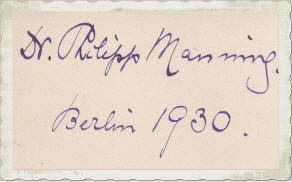 Dr. Philipp Manning.
Berlin 1930.